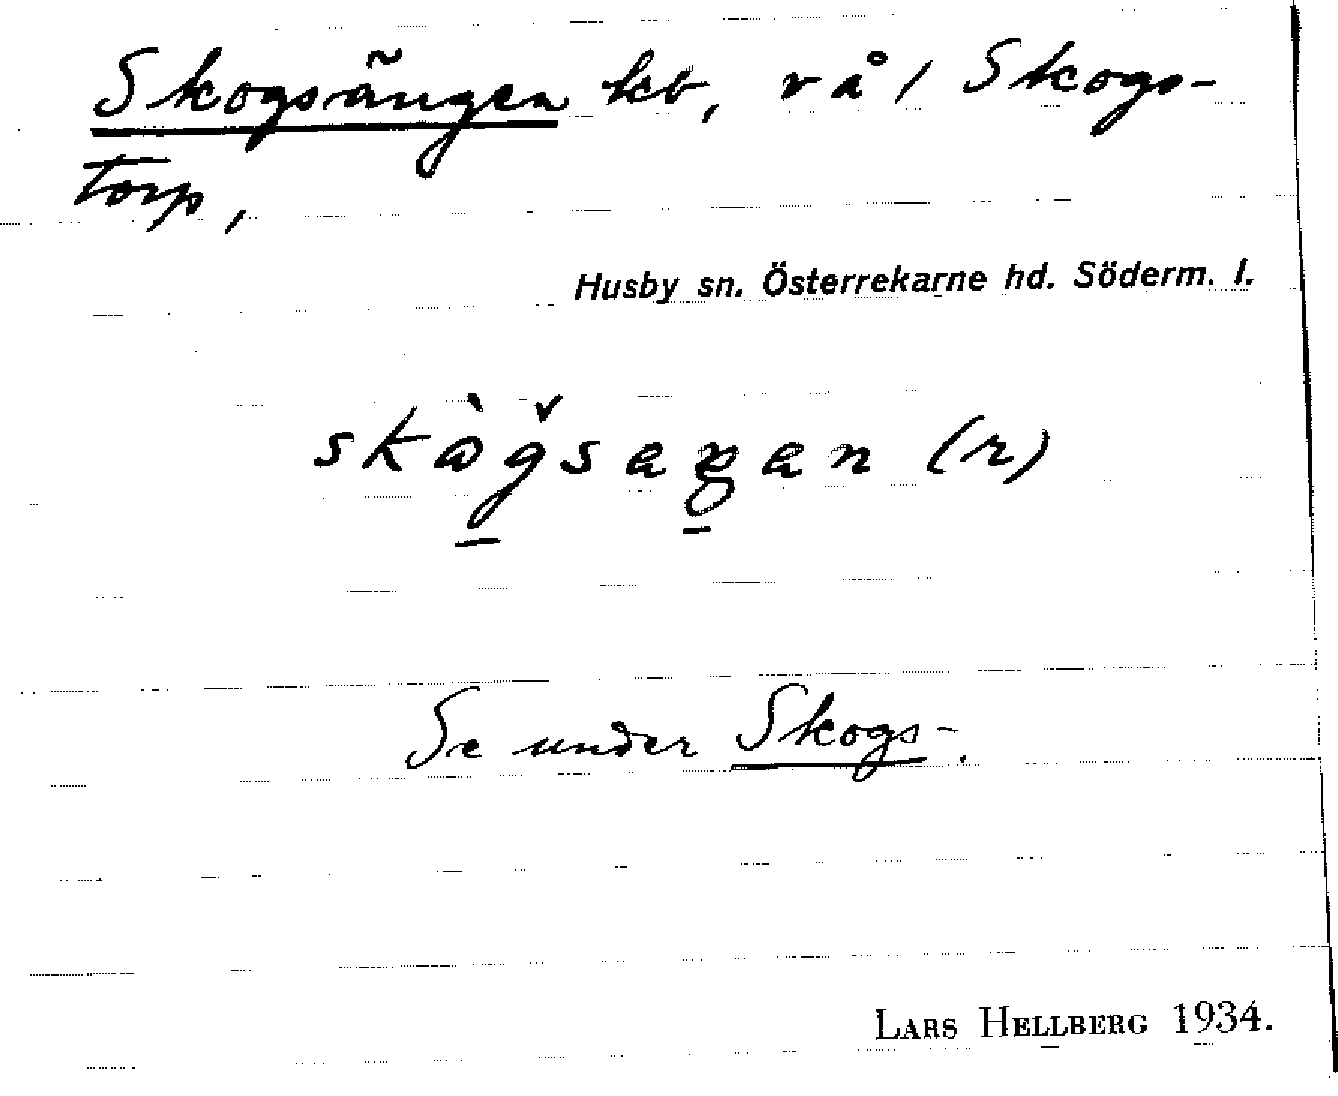 Skogsängen hb, rå / Skogs-
torp,
Husby sn. Österrekarne hd. Söderm. l.
Se under Skogs-.
LARS HELLBERG 1934.